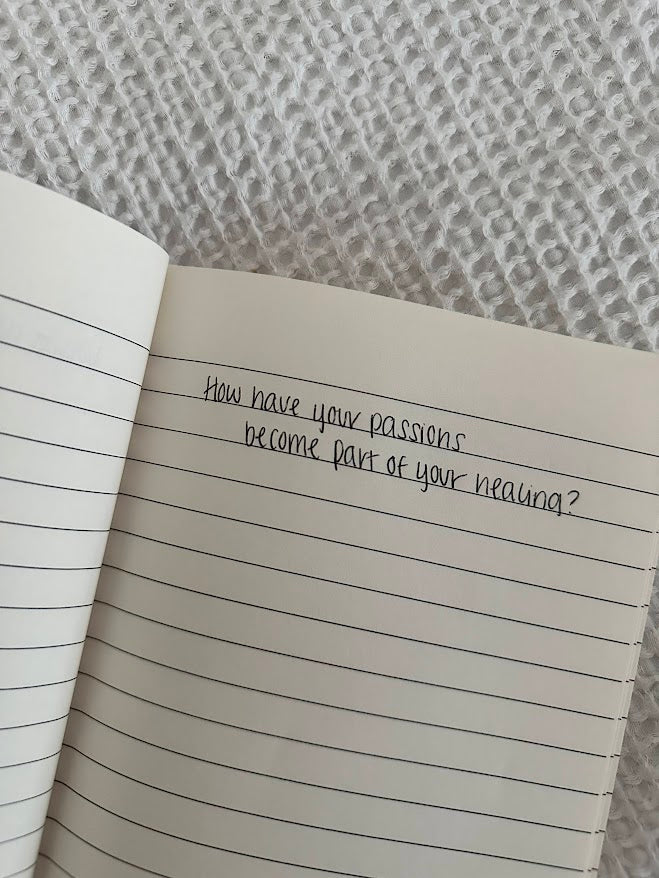 How have your passions
become part of your healing?